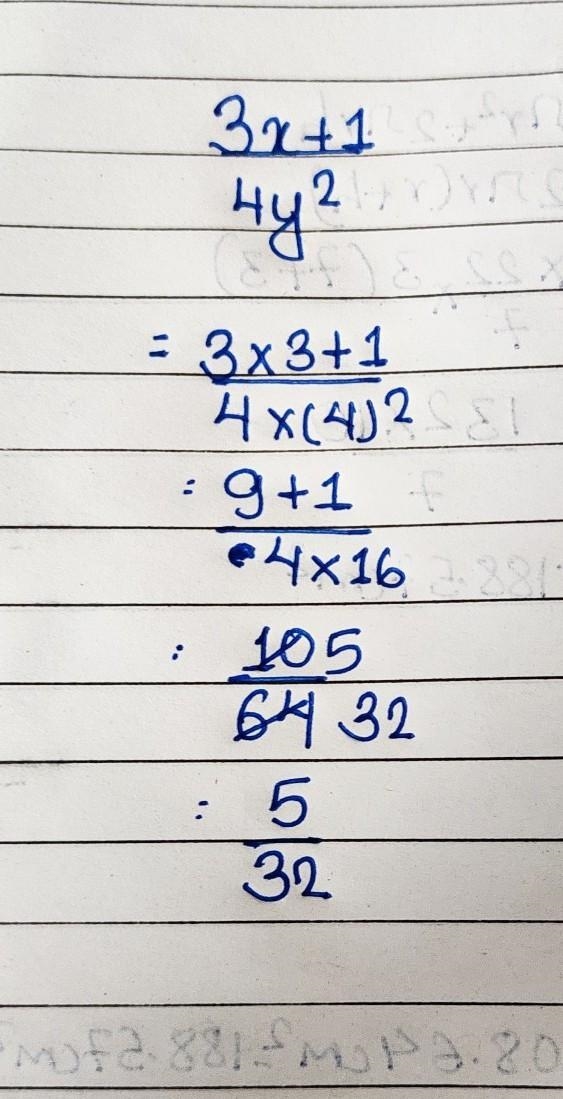 3x+1
4y²
= 3×3+1
4×(4)²
= 9+1
4×16
: 10 5
64 32
: 5
32